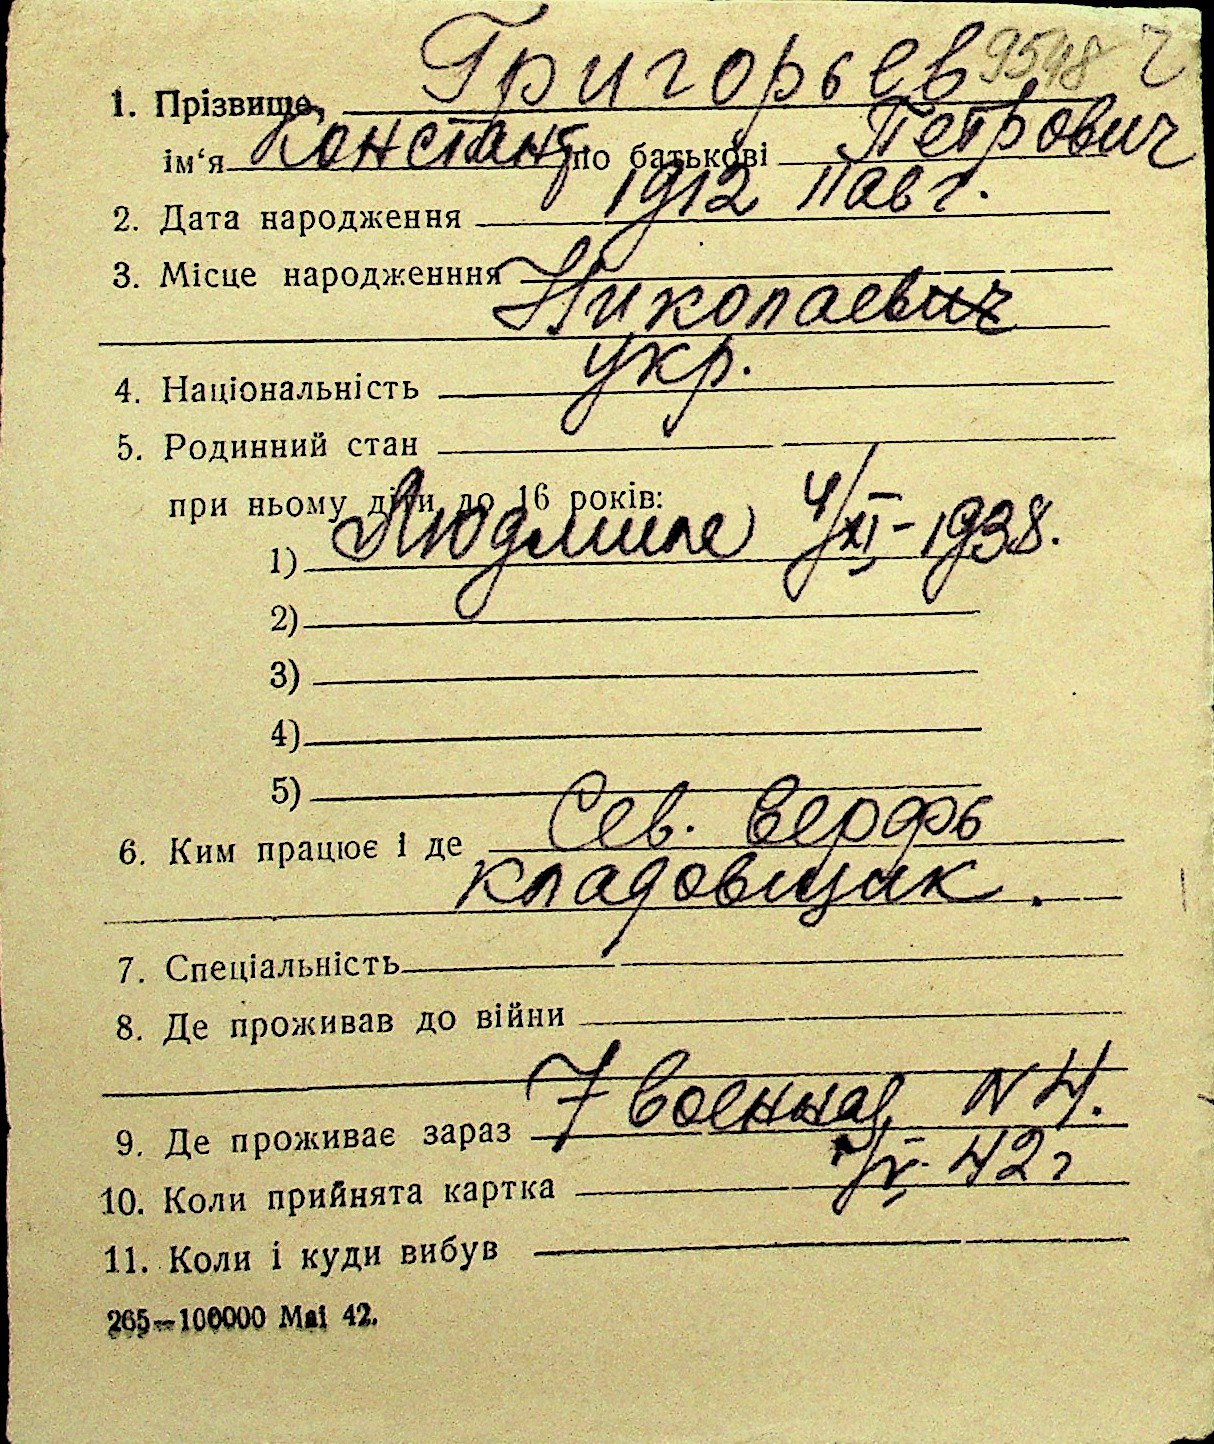 Григорьев 9548 Г
1. Прізвище,
ім‘я Констант. по батькові Петрович
2. Дата народження 1912 11 авг.
3. Місце народженння
Николаевич
4. Національність укр.
5. Родинний стан
при ньому діти до 16 років:
1) Людмила 4/XI-1938.
2)
3)
4)
5)
6. Ким працює і де Сев. верфь
кладовщик.
7. Спеціальність
8. Де проживав до війни
9. Де проживає зараз 7 военная N 4.
10. Коли прийнята картка 42 г
11. Коли і куди вибув
265—100000 Mai 42.